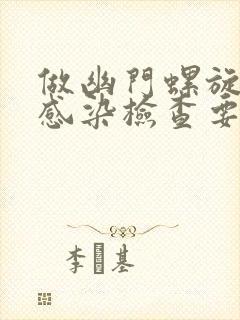 做幽門螺旋
感染檢查要
李 基